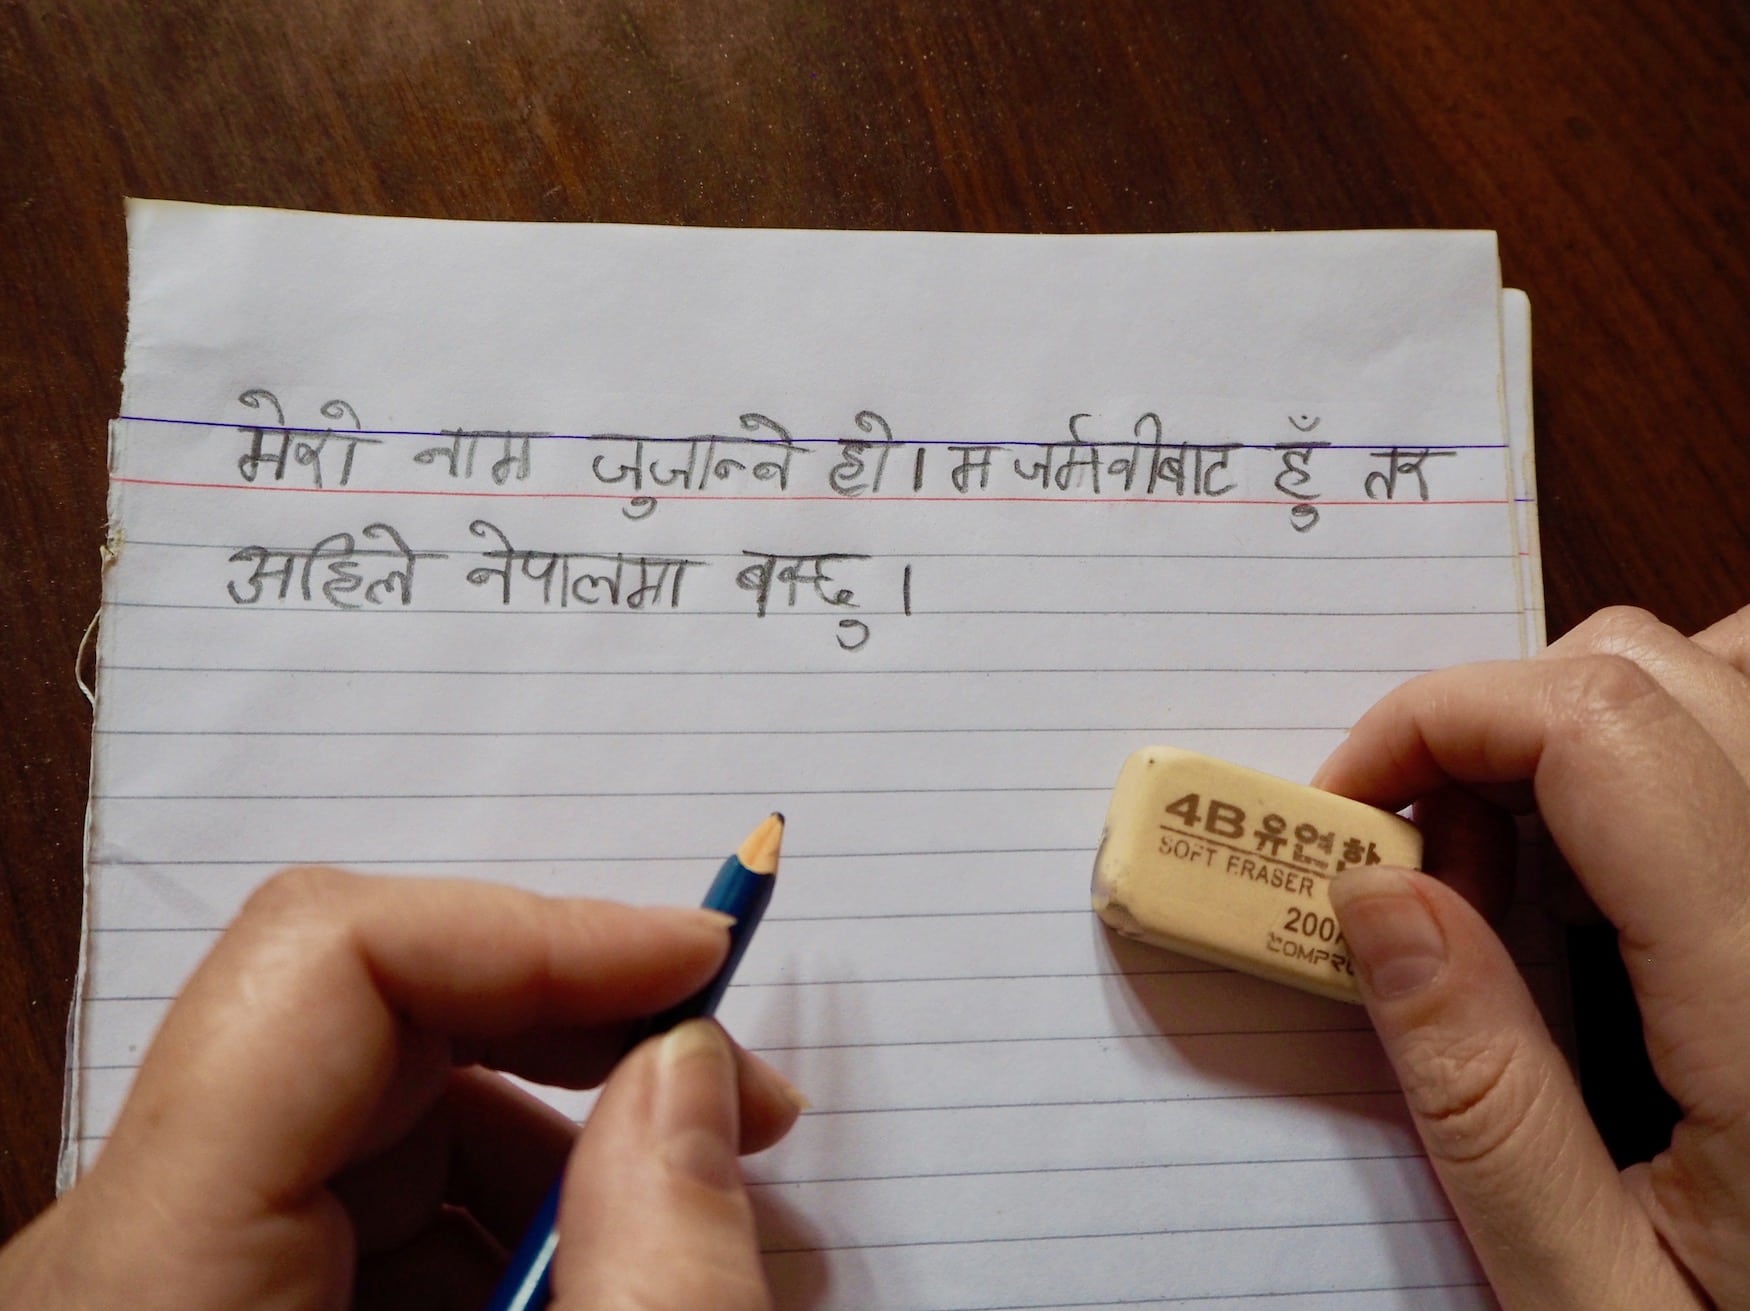 मेरो नाम जुजान्ने हो । म जर्मनीबाट हुँ तर
अहिले नेपालमा बस्छु ।
4B 유연한
SOFT ERASER
200
COMPR